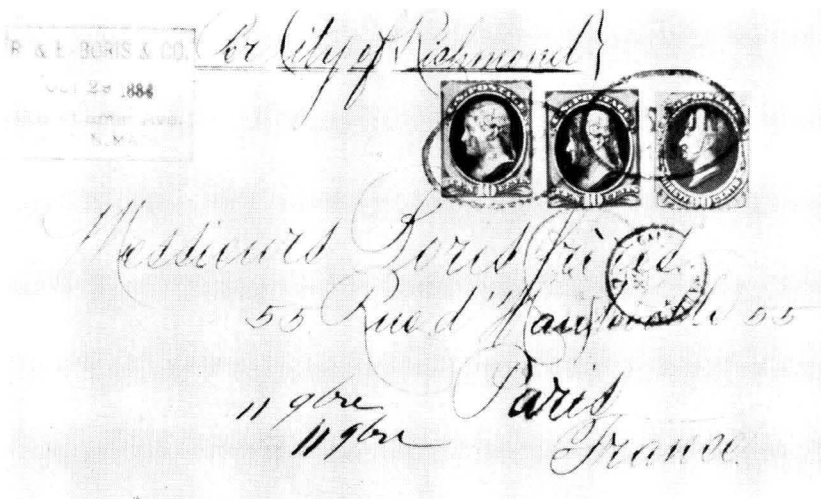 R & E BORIS & CO.
Oct 29 1884
pr City of Richmond
10
10
Messieurs Boris frères
55 Rue d'Hauteville 55
Paris
France
11 9bre
11 9bre